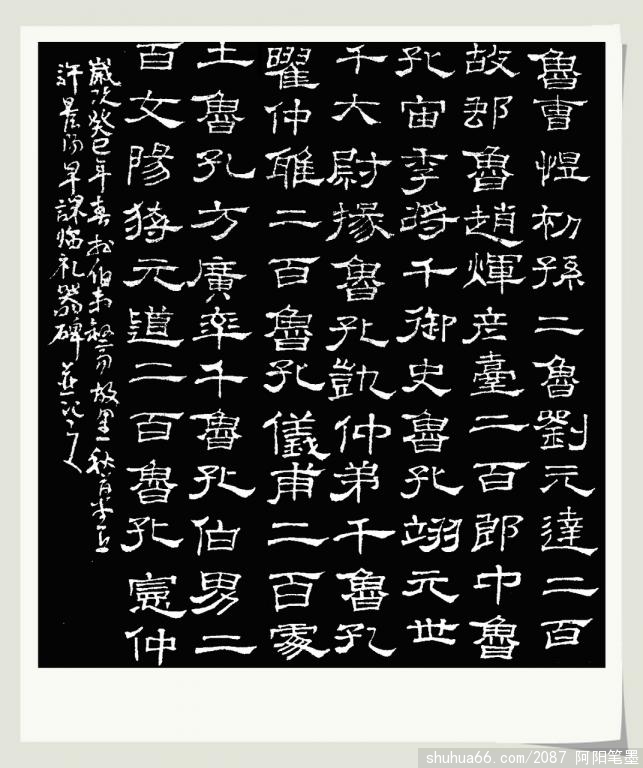 魯曹悝初孫二魯劉元達二百
故魯趙煇彦臺二百郎中魯
孔宙季將千御史魯孔翊元世
千大尉掾魯孔凱仲弟千魯孔
曜仲雅二百魯孔儀甫二百處
士魯孔方廣率千魯孔伯男二
百女陽蔣元道二百魯孔憲仲
歲次癸巳年春於伯故里秋
許早課臨礼器碑並記之
shuhua66.com/2087 阿阳笔墨